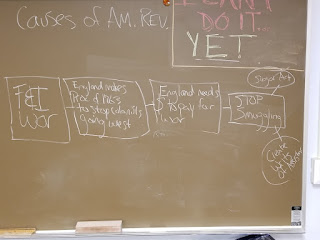 Causes of Am. Rev.
I CAN'T
DO IT...
YET
F&I
War
England makes
Proc of 1763
to stop colonists
going west
England needs
$ to pay for
war
STOP
Smuggling
Sugar Act
Create
Writs
of